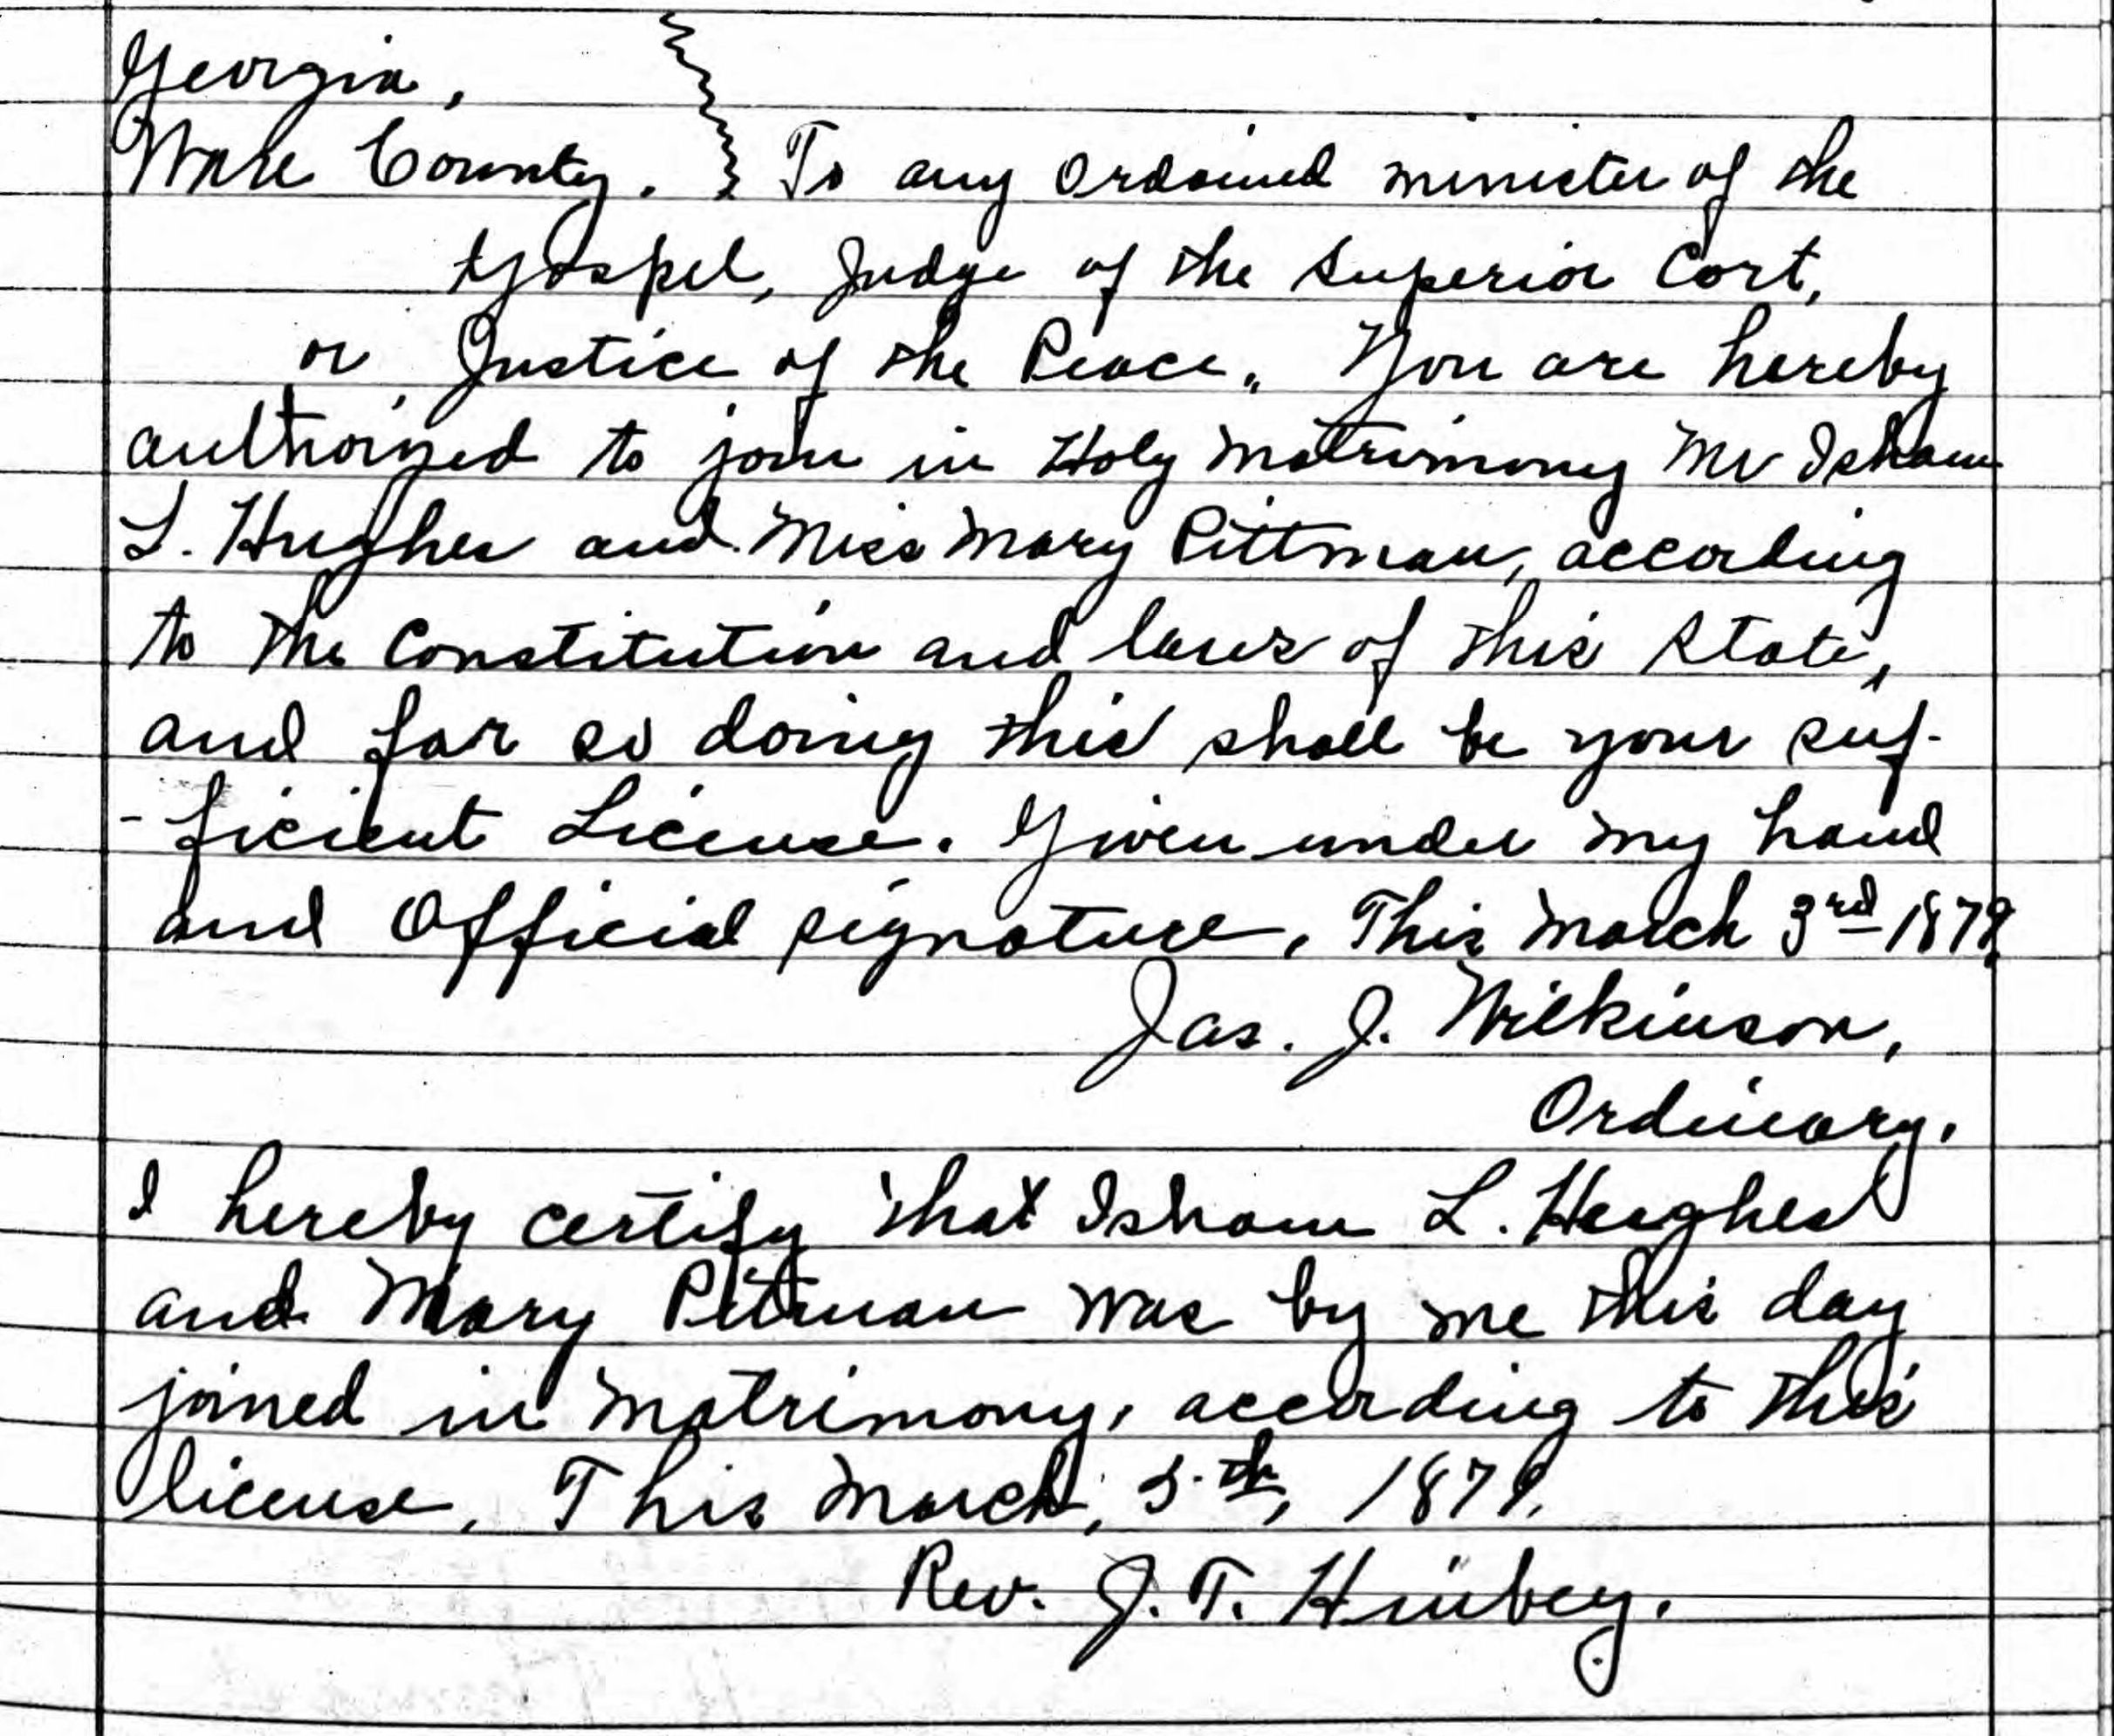 Georgia,
Ware County. To any Ordained minister of the
Gospel, Judge of the Superior Cort,
or Justice of the Peace. You are hereby
authorized to join in Holy Matrimony Mr Isham
L. Hughes and Miss Mary Pittman, according
to the Constitution and laws of this State,
and for so doing this shall be your suf-
-ficient License. Given under my hand
and Official signature, This March 3rd 1879.
Jas. J. Wilkinson,
Ordinary.
I hereby certify that Isham L. Hughes
and Mary Pittman was by me this day
joined in Matrimony, according to this
license, This March, 5th, 1879.
Rev. J. T.